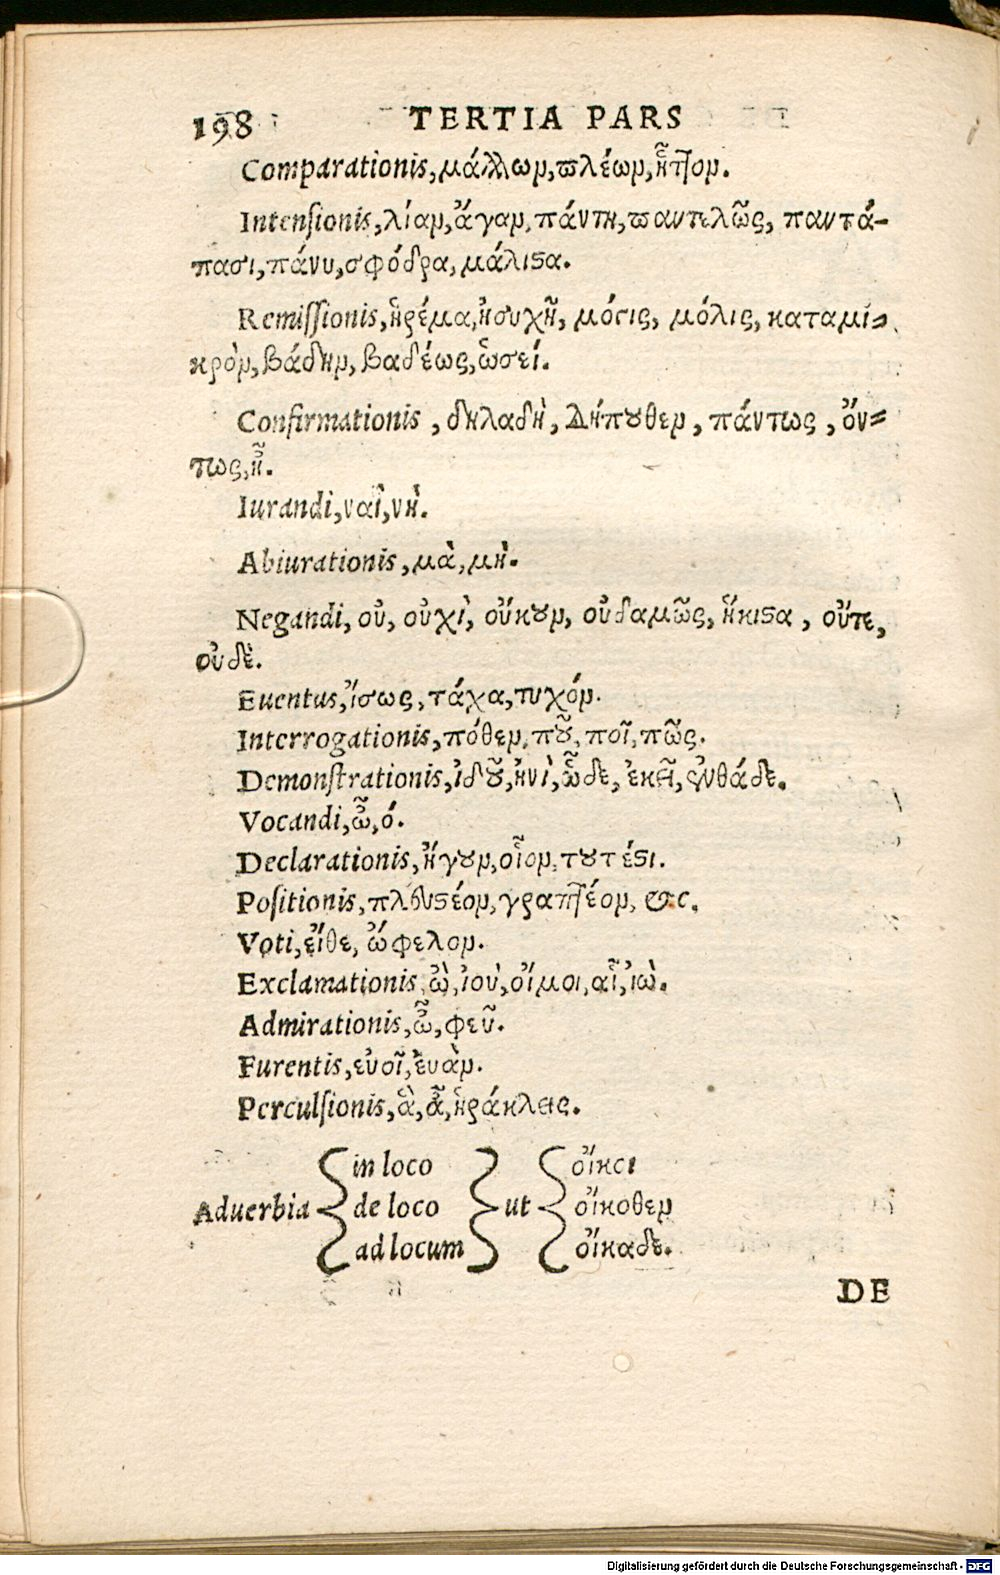 198 TERTIA PARS
Comparationis, μάλλων, πλέων, ἧττον.
Intensionis, λίαν, ἄγαν, πάντη, παντελῶς, παντά-
πασι, πάνυ, σφόδρα, μάλιστα.
Remissionis, ἠρέμα, ἡσυχῆ, μόγις, μόλις, καταμι-
κρὸν, βάδην, βαδέως, ὡσεί.
Confirmationis, δηλαδὴ, Δήπουθεν, πάντως, ὄν-
τως, ἦ.
Iurandi, ναὶ, νὴ.
Abiurationis, μὰ, μὴ.
Negandi, οὐ, οὐχὶ, οὔκουν, οὐδαμῶς, ἥκιστα, οὔτε,
οὐδὲ.
Euentus, ἴσως, τάχα, τυχόν.
Interrogationis, πόθεν, ποῦ, ποῖ, πῶς.
Demonstrationis, ἰδοῦ, ἠνὶ, ὧδε, ἐκεῖ, ἐνθάδε.
Vocandi, ὦ, ό.
Declarationis, ἤγουν, οἷον, τουτέστι.
Positionis, πλευστέον, γραπτέον, &c.
Voti, εἴθε, ὤφελον.
Exclamationis, ὢ, ἰοὺ, οἴμοι, αἶ, ἰὼ.
Admirationis, ὦ, φεῦ.
Furentis, εὐοῖ, ἐυὰν.
Perculsionis, ἃ, ἆ, ἡράκλεις.
in loco οἴκοι
Aduerbia de loco ut οἴκοθεν
ad locum οἴκαδε.
DE
Digitalisierung gefördert durch die Deutsche Forschungsgemeinschaft - DFG